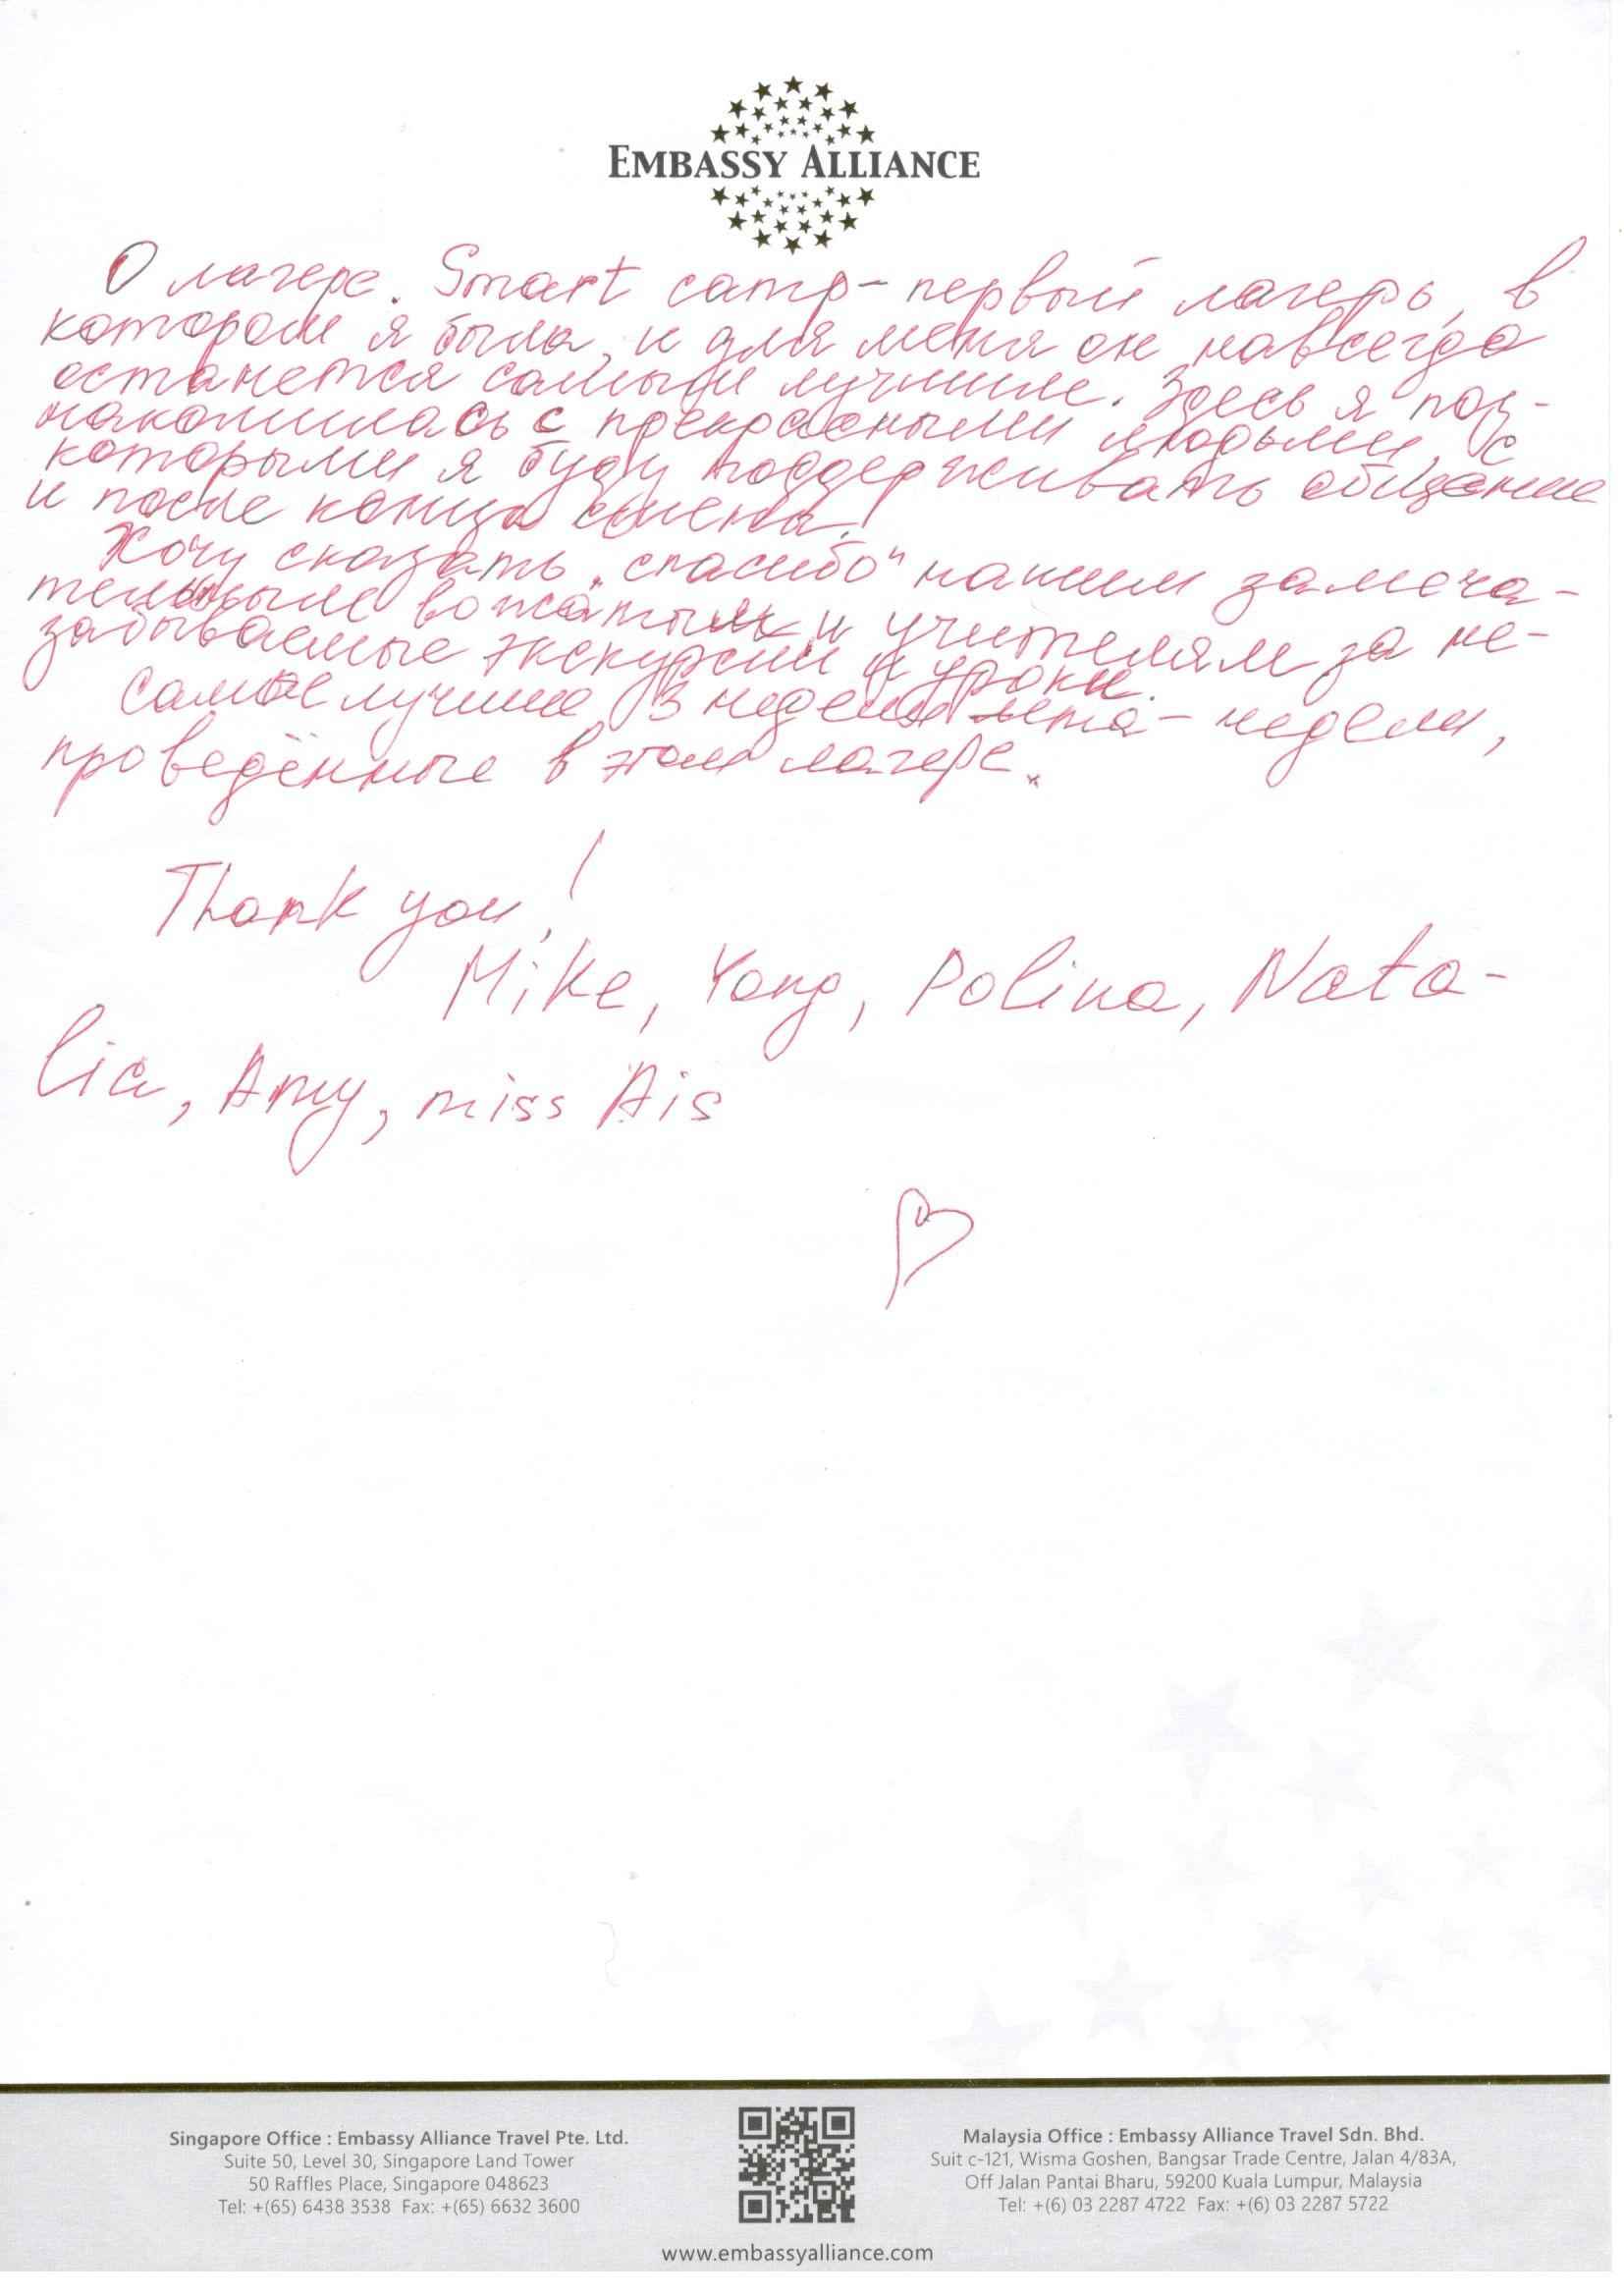 EMBASSY ALLIANCE
О лагере. Smart camp - первый лагерь, в
котором я была, и для меня он навсегда
останется самым лучшим. Здесь я поз-
накомилась с прекрасными людьми, с
которыми я буду поддерживать общение
и после конца смены!
Хочу сказать „спасибо" нашим замеча-
тельным вожатым и учителям за не-
забываемые экскурсии и уроки.
Самые лучшие 3 недели лета - недели,
проведённые в этом лагере.
Thank you!
Mike, Yang, Polina, Nata-
lia, Amy, miss Ais
Singapore Office : Embassy Alliance Travel Pte. Ltd.
Suite 50, Level 30, Singapore Land Tower
50 Raffles Place, Singapore 048623
Tel: +(65) 6438 3538 Fax: +(65) 6632 3600
Malaysia Office : Embassy Alliance Travel Sdn. Bhd.
Suit c-121, Wisma Goshen, Bangsar Trade Centre, Jalan 4/83A,
Off Jalan Pantai Bharu, 59200 Kuala Lumpur, Malaysia
Tel: +(6) 03 2287 4722 Fax: +(6) 03 2287 5722
www.embassyalliance.com